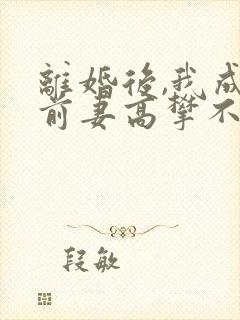 離婚後,我成
前妻高攀不
段敏